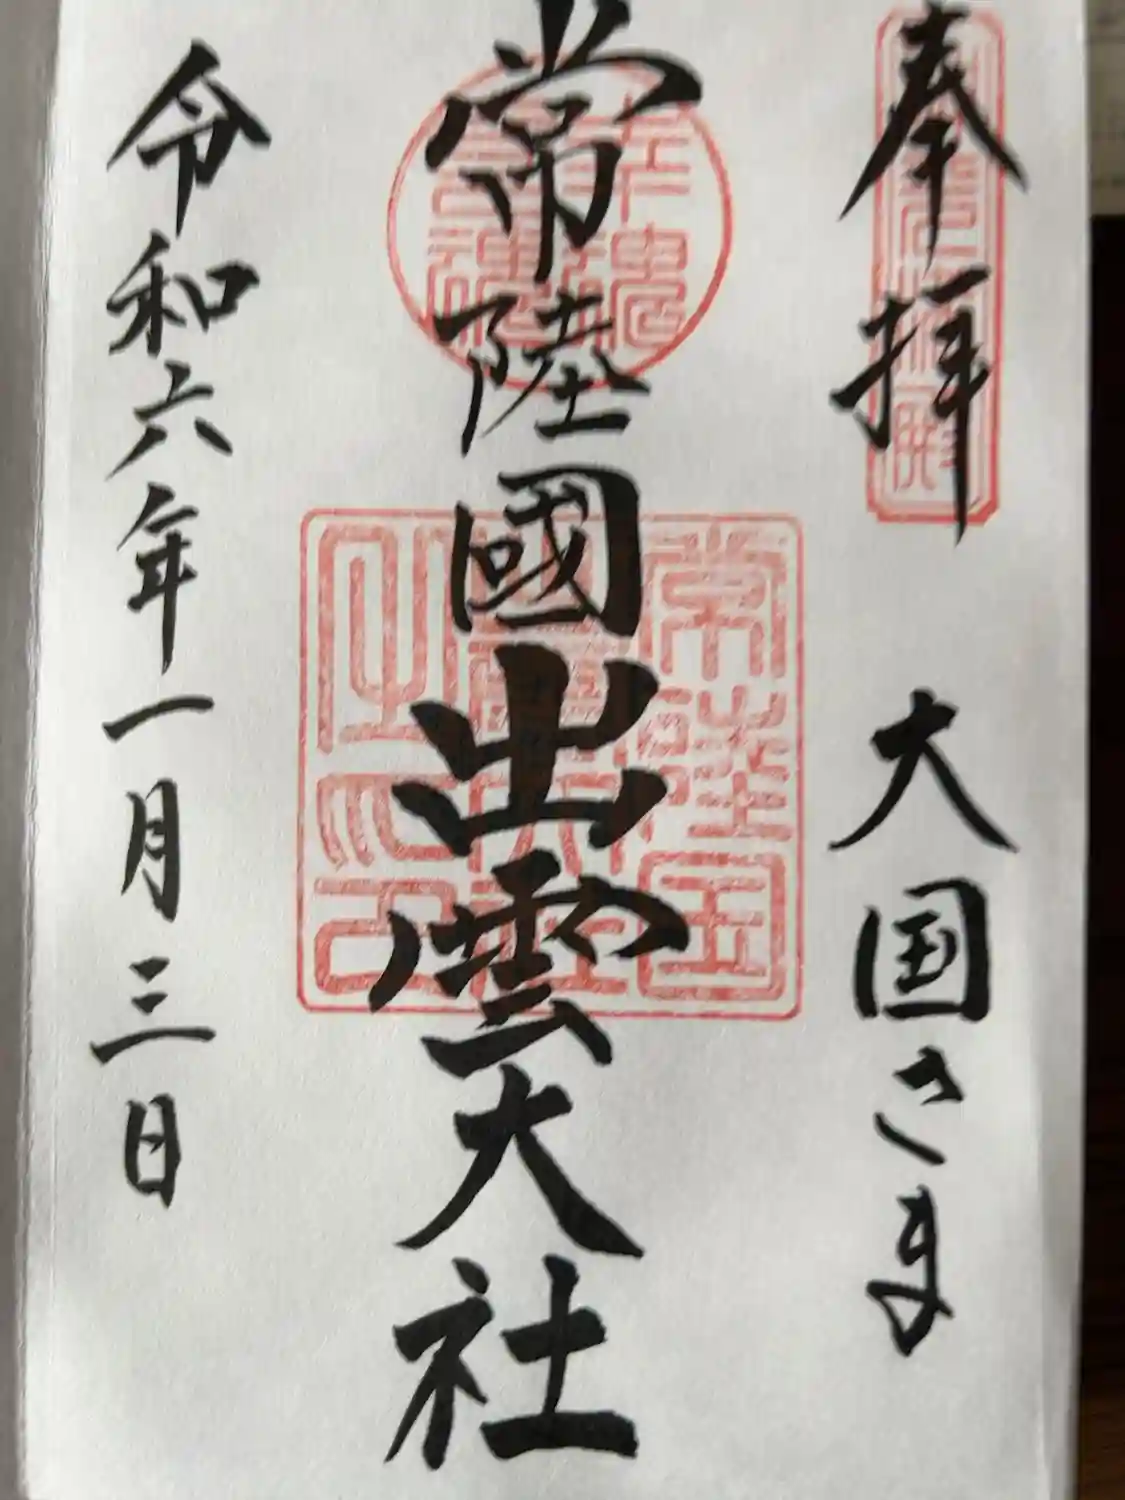 奉拝 大国さま
常陸國出雲大社
常陸国
令和六年一月三日